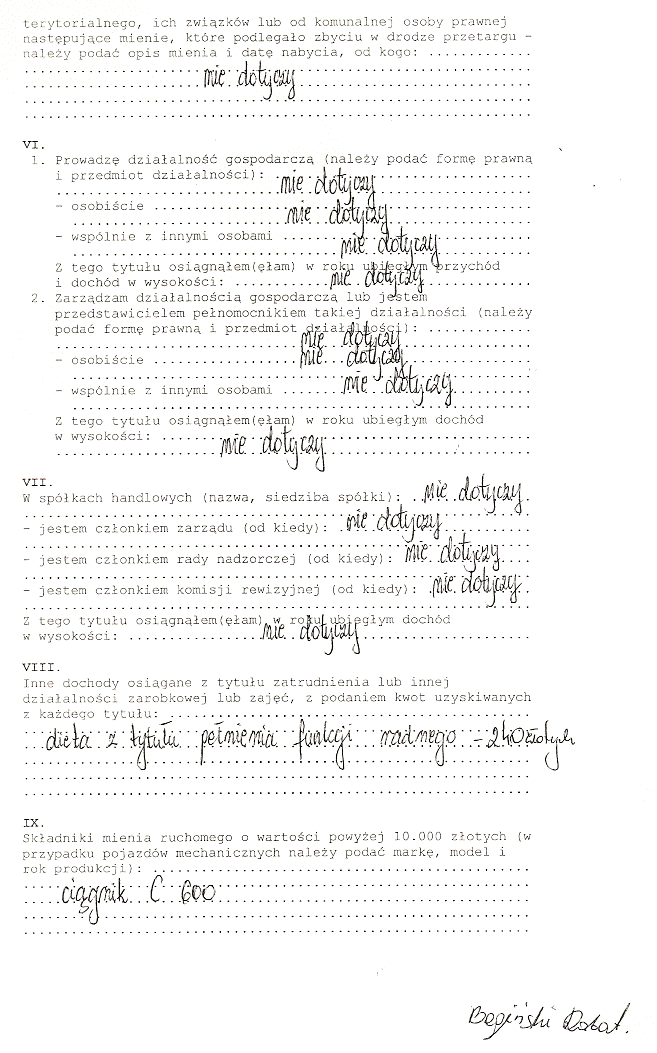 terytorialnego, ich związków lub od komunalnej osoby prawnej
następujące mienie, które podlegało zbyciu w drodze przetargu –
należy podać opis mienia i datę nabycia, od kogo: .............
nie dotyczy
VI.
1. Prowadzę działalność gospodarczą (należy podać formę prawną
i przedmiot działalności): nie dotyczy
- osobiście ........ nie dotyczy
- wspólnie z innymi osobami ....... nie dotyczy
Z tego tytułu osiągnąłem(ęłam) w roku ubiegłym przychód
i dochód w wysokości: ........ nie dotyczy
2. Zarządzam działalnością gospodarczą lub jestem
przedstawicielem pełnomocnikiem takiej działalności (należy
podać formę prawną i przedmiot działalności): .............
nie dotyczy
- osobiście ........ nie dotyczy
- wspólnie z innymi osobami ....... nie dotyczy
Z tego tytułu osiągnąłem(ęłam) w roku ubiegłym dochód
w wysokości: ....... nie dotyczy
VII.
W spółkach handlowych (nazwa, siedziba spółki): nie dotyczy
- jestem członkiem zarządu (od kiedy): nie dotyczy
- jestem członkiem rady nadzorczej (od kiedy): nie dotyczy
- jestem członkiem komisji rewizyjnej (od kiedy): nie dotyczy
Z tego tytułu osiągnąłem(ęłam) w roku ubiegłym dochód
w wysokości: ........ nie dotyczy
VIII.
Inne dochody osiągane z tytułu zatrudnienia lub innej
działalności zarobkowej lub zajęć, z podaniem kwot uzyskiwanych
z każdego tytułu: .............
dieta z tytułu pełnienia funkcji radnego – 240 złotych
IX.
Składniki mienia ruchomego o wartości powyżej 10.000 złotych (w
przypadku pojazdów mechanicznych należy podać markę, model i
rok produkcji): .............
ciągnik C 600